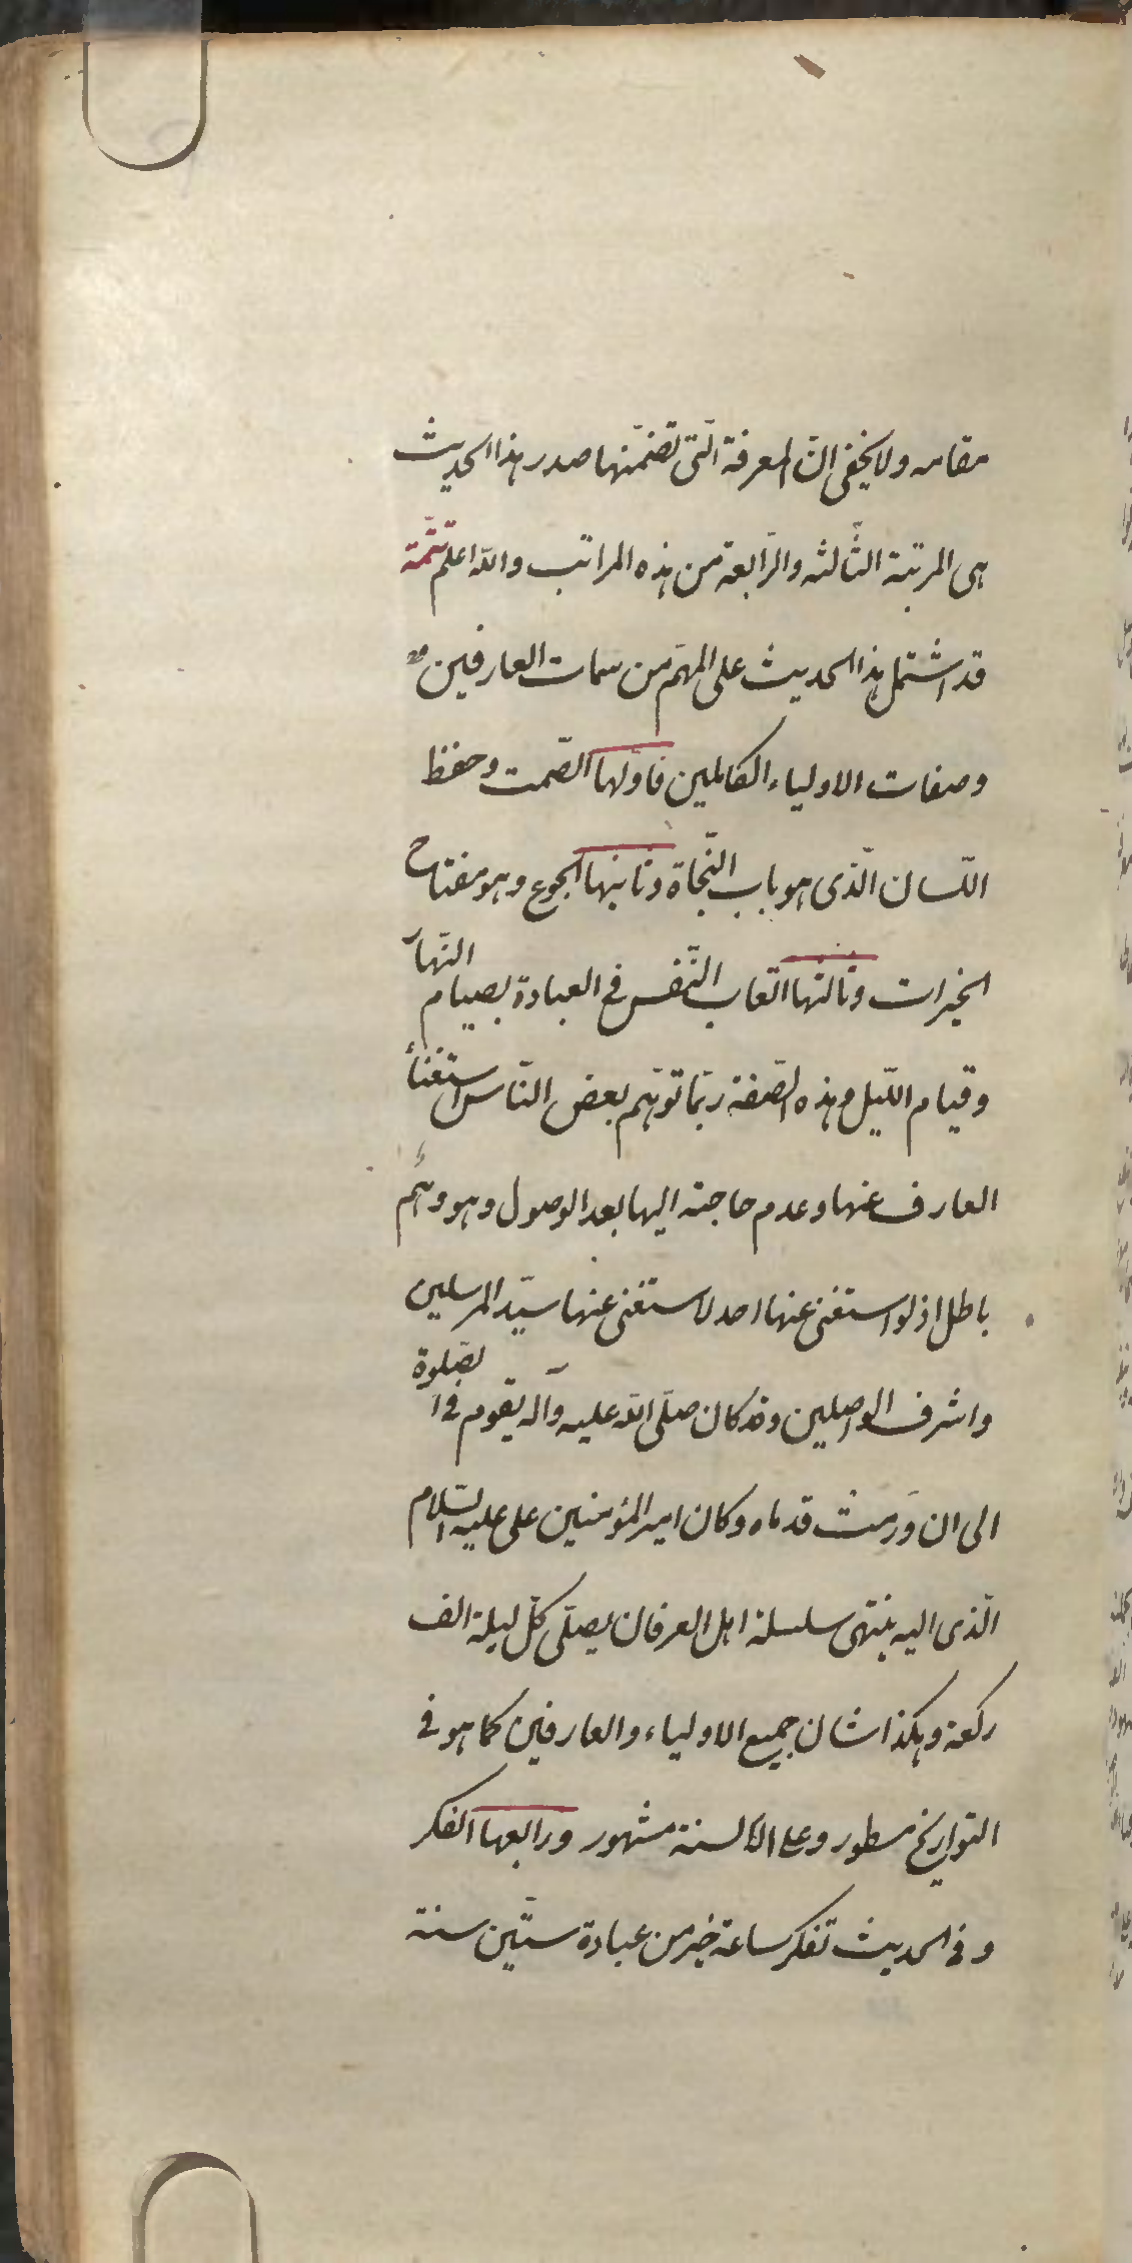 مقامه ولا يخفى ان المعرفة التى تضمّنها صدر هذا الحديث
هى المرتبة الثّالثه والرّابعة من هذه المراتب والله اعلم تتمّة
قد اشتمل هذا الحديث على المهمّ من سمات العارفين
وصفات الاولياء الكاملين فاوّلها الصّمت وحفظ
اللّسان الّذى هو باب النّجاة وثانيها الجوع وهو مفتاح
الخيرات وثالثها اتعاب النّفس فى العبادة بصيام النّهار
وقيام اللّيل وهذه الصّفة ربّما توهّم بعض النّاس استغناء
العارف عنها وعدم حاجته اليها بعد الوصول وهو وَهْم
باطل اذ لو استغنى عنها احد لاستغنى عنها سيّد المرسلين
واشرف الواصلين وقد كان صلّى الله عليه وآله يقوم فى الصّلوة
الى ان وَرِمَتْ قدماه وكان امير المؤمنين على عليه السّلام
الّذى اليه ينتهى سلسلة اهل العرفان يصلّى كلّ ليلة الف
ركعة وهكذا شان جميع الاولياء والعارفين كما هو فى
التواريخ مسطور وعلى الالسنة مشهور ورابعها الفكر
وفى الحديث تفكر ساعة خير من عبادة ستّين سنة